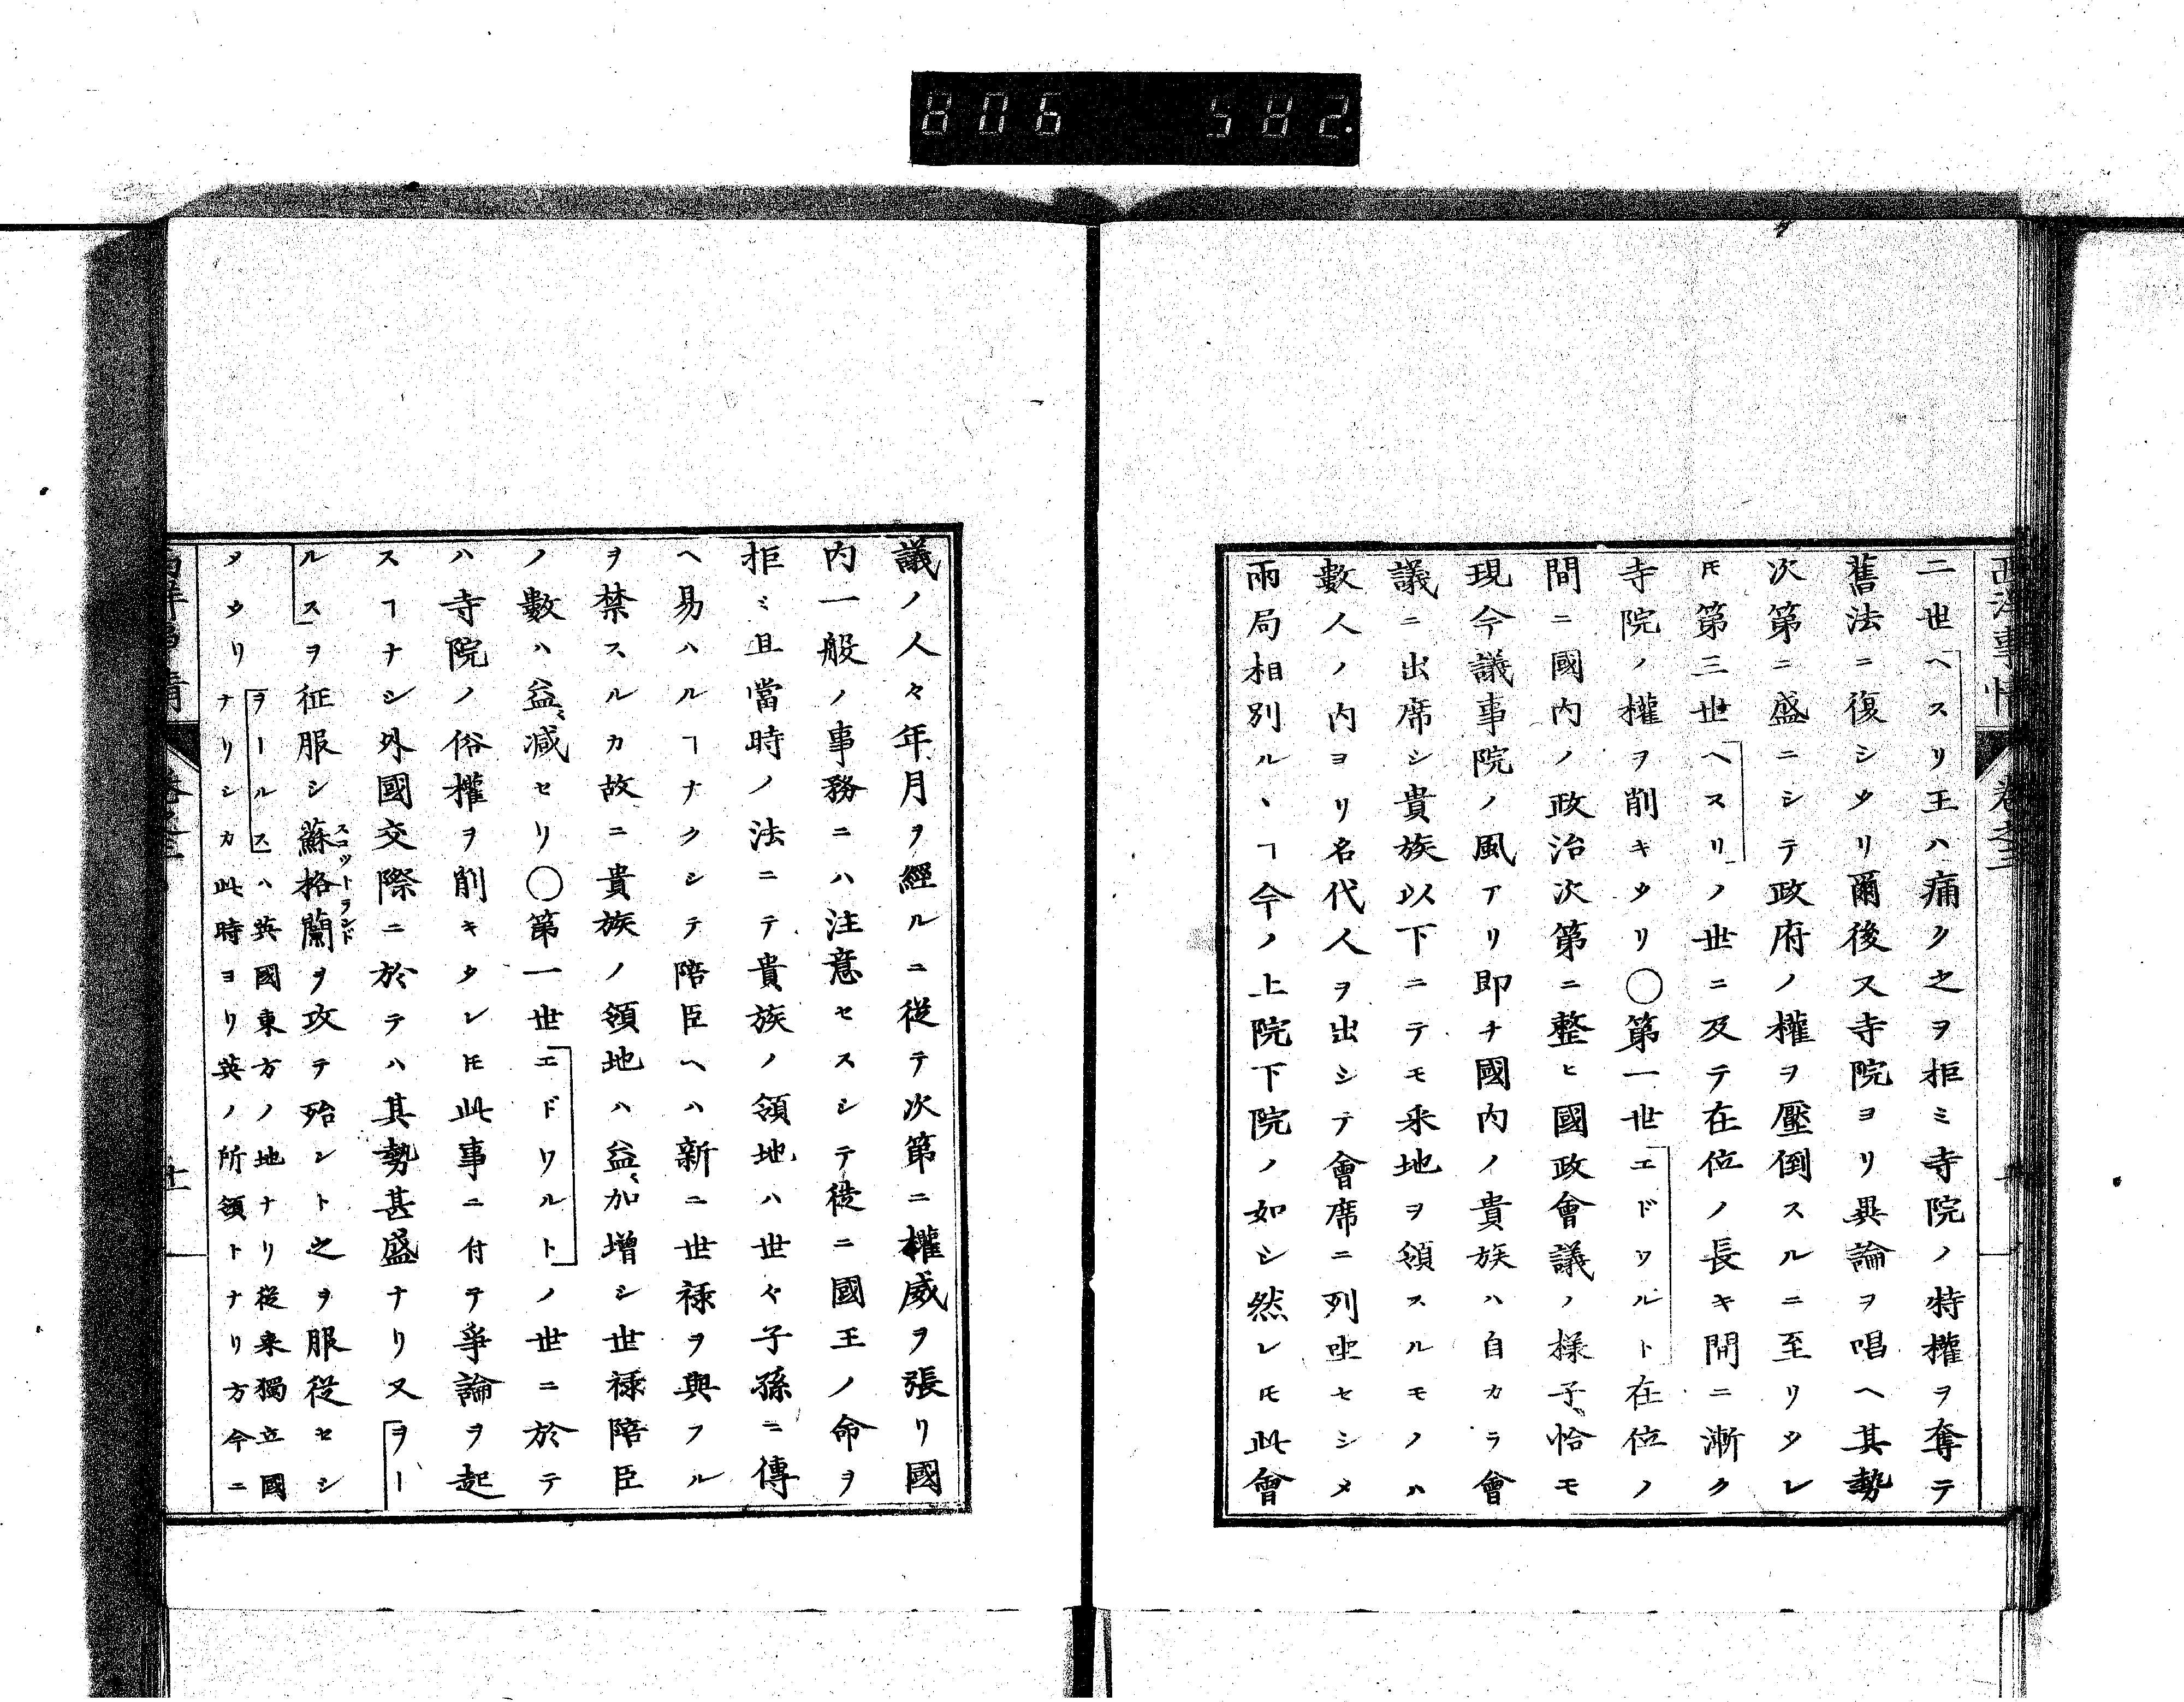 806 582.
二世ヘスリ王ハ痛ク之ヲ拒ミ寺院ノ特權ヲ奪テ
舊法ニ復シタリ爾後又寺院ヨリ異論ヲ唱ヘ其勢
次第ニ盛ニシテ政府ノ權ヲ壓倒スルニ至リタレ
𪜈第三世ヘスリノ世ニ及テ在位ノ長キ間ニ漸ク
寺院ノ權ヲ削キタリ〇第一世エドワルト在位ノ
間ニ國内ノ政治次第ニ整ヒ國政會議ノ様子恰モ
現今議事院ノ風アリ即チ國内ノ貴族ハ自カラ會
議ニ出席シ貴族以下ニテモ采地ヲ領スルモノハ
數人ノ内ヨリ名代人ヲ出シテ會席ニ列坐セシメ
兩局相別ルヽヿ今ノ上院下院ノ如シ然レ𪜈此會
議ノ人々年月ヲ經ルニ従テ次第ニ權威ヲ張リ國
内一般ノ事務ニハ注意セスシテ徒ニ國王ノ命ヲ
拒ミ且當時ノ法ニテ貴族ノ領地ハ世々子孫ニ傳
ヘ易ハルヿナクシテ陪臣ヘハ新ニ世禄ヲ與フル
ヲ禁スルカ故ニ貴族ノ領地ハ益〻加増シ世禄陪臣
ノ數ハ益〻減セリ〇第一世エドワルトノ世ニ於テ
ハ寺院ノ俗權ヲ削キタレ𪜈此事ニ付テ爭論ヲ起
スヿナシ外國交際ニ於テハ其勢甚盛ナリ又ヲー
ルスヲ征服シ蘇格蘭ヲ攻テ殆ント之ヲ服従セシ
スコットランド
メタリ
ヲールスハ英國東方ノ地ナリ従来獨立國
ナリシカ此時ヨリ英ノ所領トナリ方今ニ